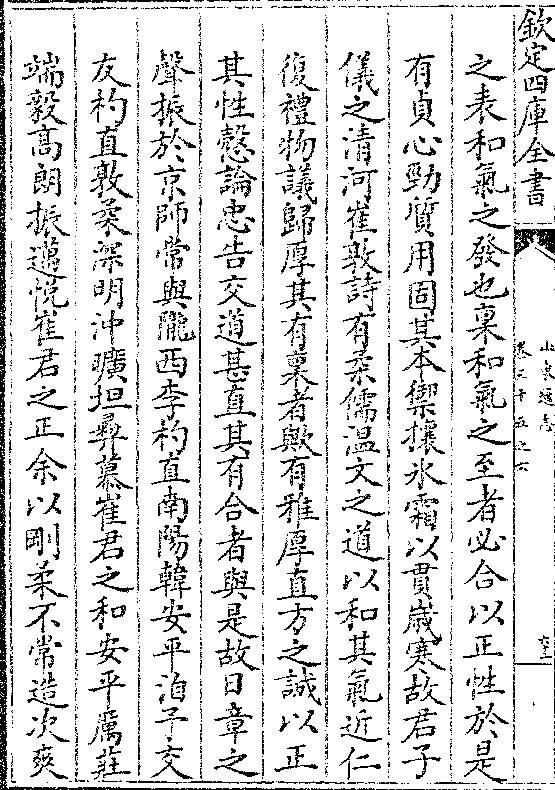 欽定四庫全書
山東通志
卷三十五之六
之表和氣之發也稟和氣之至者必合以正性於是
有貞心勁質用固其本禦攘氷霜以貫嵗寒故君子
儀之清河崔敦詩有柔儒温文之道以和其氣近仁
復禮物議歸厚其有稟者歟有雅厚直方之誠以正
其性慤論忠告交道甚直其有合者與是故日章之
聲振於京師常與隴西李杓直南陽韓安平洎予交
友杓直敦柔深明沖曠坦彛慕崔君之和安平厲莊
端毅高朗振邁悅崔君之正余以剛柔不常造次爽